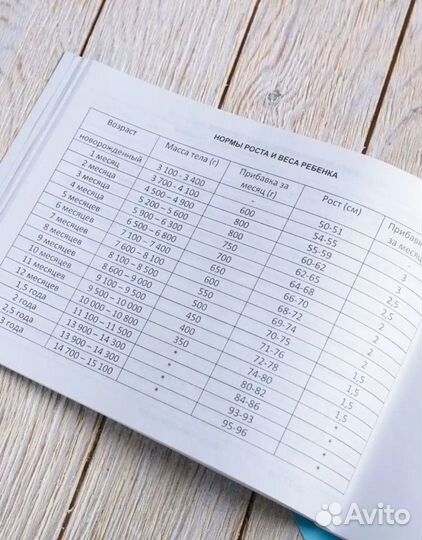 НОРМЫ РОСТА И ВЕСА РЕБЕНКА
Возраст
новорожденный
1 месяц
2 месяца
3 месяца
4 месяца
5 месяцев
6 месяцев
7 месяцев
8 месяцев
9 месяцев
10 месяцев
11 месяцев
12 месяцев
1,5 года
2 года
2,5 года
3 года
Масса тела (г)
3 100 - 3 400
3 700 - 4 100
4 500 – 4 900
5 200 – 5 600
5 900 – 6 300
6 500 – 6 800
7 100 – 7 400
7 600 – 8 100
8 100 – 8 500
8 600 – 9 000
9 500 – 10 000
10 000 – 10 800
11 100 – 11 500
13 900 – 14 300
13 900 – 14 300
14 700 – 15 100
Прибавка за
месяц (г)
-
600
800
800
750
700
650
600
550
500
450
400
350
*
*
*
*
Рост (см)
50-51
54-55
55-59
60-62
62-65
64-68
66-70
68-72
69-74
70-75
71-76
72-78
74-80
80-82
84-86
93-93
95-96
Прибавк
за месяц
-
3
3
2,5
2,5
2
2
2
2
1,5
1,5
1,5
1,5
*
*
*
*
Avito